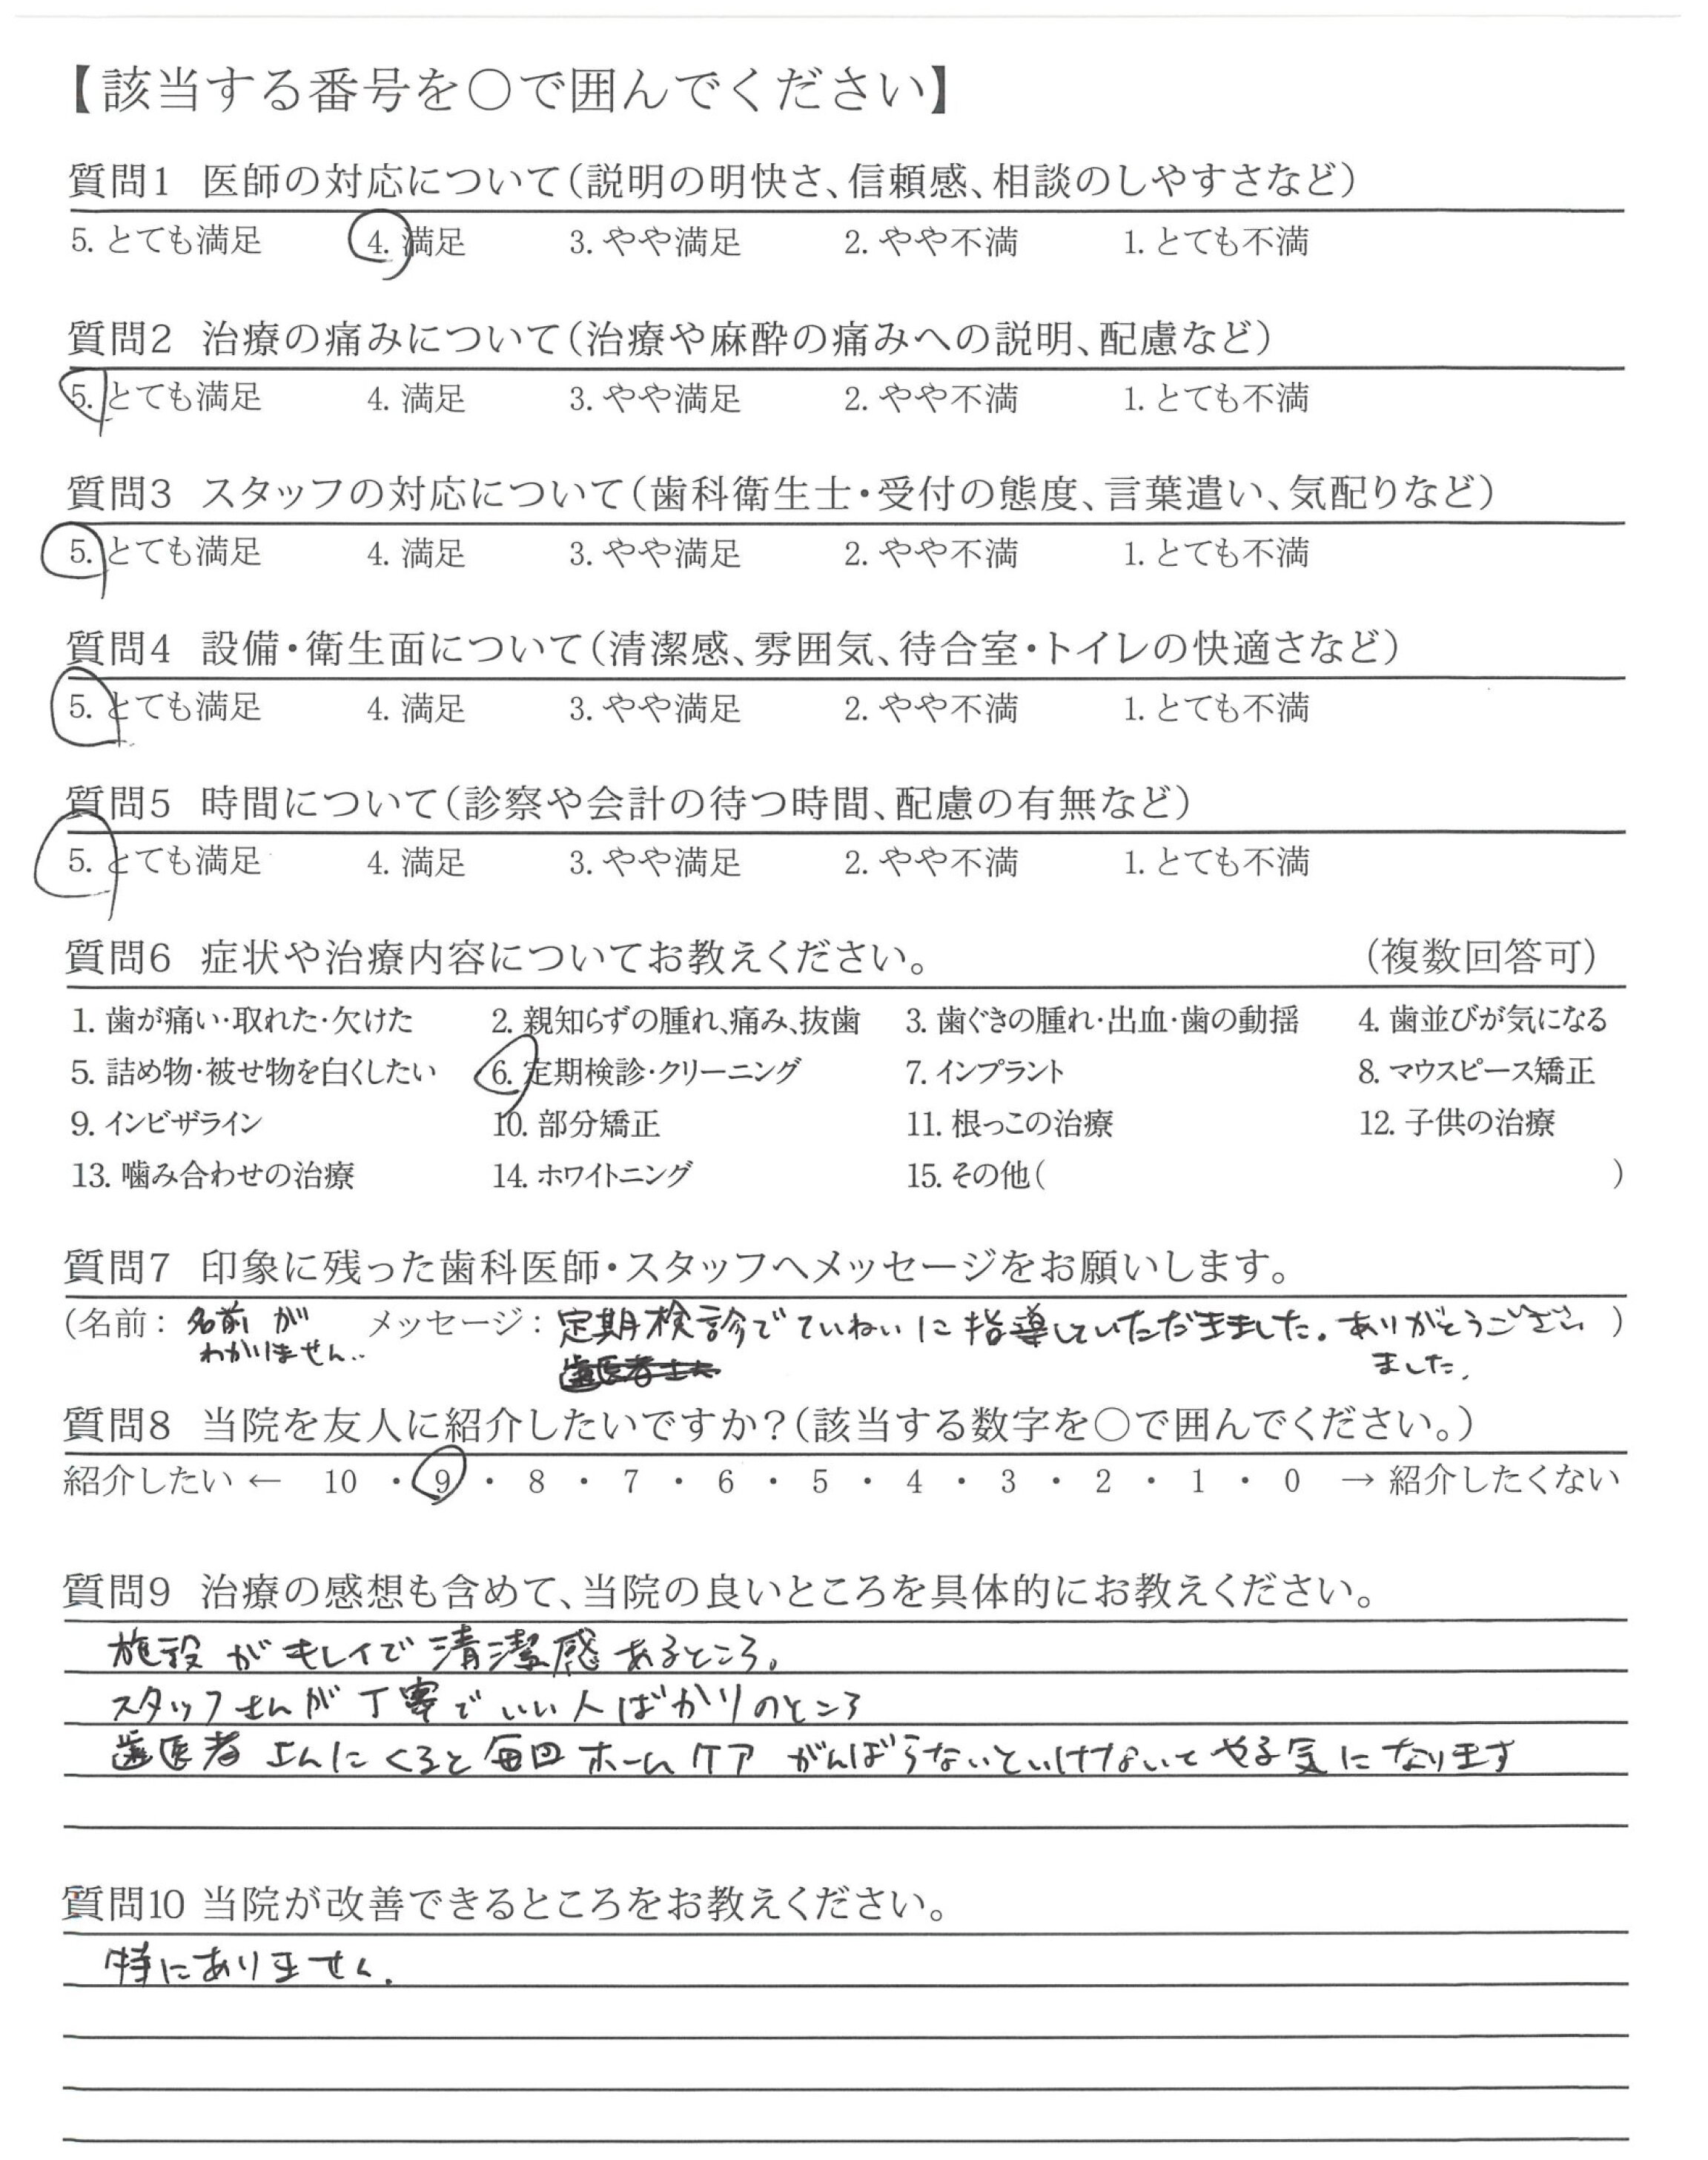 【該当する番号を○で囲んでください】
質問1 医師の対応について(説明の明快さ、信頼感、相談のしやすさなど)
5. とても満足 4. 満足 3. やや満足 2. やや不満 1. とても不満
質問2 治療の痛みについて(治療や麻酔の痛みへの説明、配慮など)
5. とても満足 4. 満足 3. やや満足 2. やや不満 1. とても不満
質問3 スタッフの対応について(歯科衛生士・受付の態度、言葉遣い、気配りなど)
5. とても満足 4. 満足 3. やや満足 2. やや不満 1. とても不満
質問4 設備・衛生面について(清潔感、雰囲気、待合室・トイレの快適さなど)
5. とても満足 4. 満足 3. やや満足 2. やや不満 1. とても不満
質問5 時間について(診察や会計の待つ時間、配慮の有無など)
5. とても満足 4. 満足 3. やや満足 2. やや不満 1. とても不満
質問6 症状や治療内容についてお教えください。 (複数回答可)
1. 歯が痛い・取れた・欠けた 2. 親知らずの腫れ、痛み、抜歯 3. 歯ぐきの腫れ・出血・歯の動揺 4. 歯並びが気になる
5. 詰め物・被せ物を白くしたい 6. 定期検診・クリーニング 7. インプラント 8. マウスピース矯正
9. インビザライン 10. 部分矯正 11. 根っこの治療 12. 子供の治療
13. 噛み合わせの治療 14. ホワイトニング 15. その他( )
質問7 印象に残った歯科医師・スタッフへメッセージをお願いします。
(名前: 名前が メッセージ: 定期検診でていねいに指導していただきました。ありがとうござい )
わかりません.. ました。
質問8 当院を友人に紹介したいですか?(該当する数字を○で囲んでください。)
紹介したい ← 10 ・ 9 ・ 8 ・ 7 ・ 6 ・ 5 ・ 4 ・ 3 ・ 2 ・ 1 ・ 0 → 紹介したくない
質問9 治療の感想も含めて、当院の良いところを具体的にお教えください。
施設がキレイで清潔感あるところ。
スタッフさんが丁寧でいい人ばかりのところ
歯医者さんにくると毎回ホームケアがんばらないといけないってやる気になります
質問10 当院が改善できるところをお教えください。
特にありません.